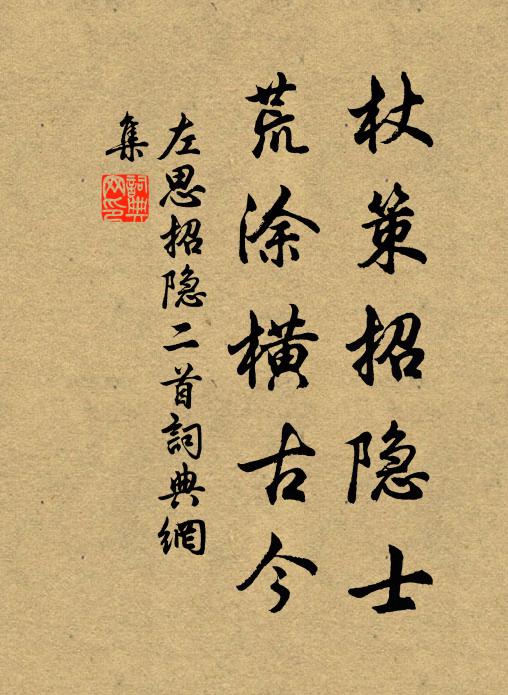 杖策招隐士
荒涂横古今
左思招隐二首詞典網
集
詞典網印